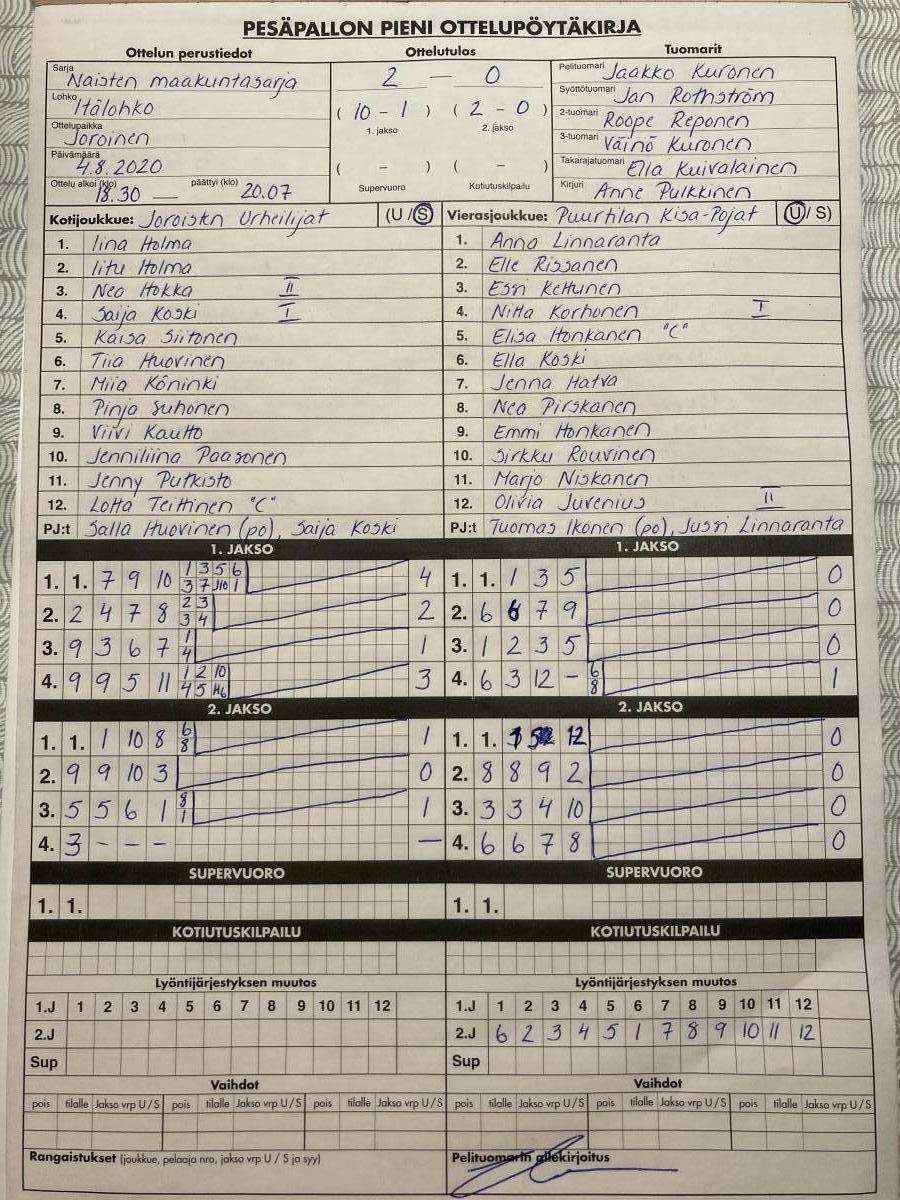 PESÄPALLON PIENI OTTELUPÖYTÄKIRJA
Ottelun perustiedot Ottelutulos Tuomarit
Sarja Naisten maakuntasarja
Lohko Itälohko
Ottelupaikka Joroinen
Päivämäärä 4.8.2020
Ottelu alkoi (klo) 18.30 — päättyi (klo) 20.07
2 — 0
( 10 - 1 ) ( 2 - 0 )
1. jakso 2. jakso
( - ) ( - )
Supervuoro Kotiutuskilpailu
Pelituomari Jaakko Kuronen
Syöttötuomari Jan Rothström
2-tuomari Roope Reponen
3-tuomari Väinö Kuronen
Takarajatuomari Ella Kuivalainen
Kirjuri Anne Pulkkinen
Kotijoukkue: Joroisten Urheilijat (U / S)
1. Iina Holma
2. Iitu Holma
3. Nea Hokka II
4. Saija Koski I
5. Kaisa Siitonen
6. Tiia Huovinen
7. Miia Köninki
8. Pinja Suhonen
9. Viivi Kautto
10. Jenniliina Paasonen
11. Jenny Putkisto
12. Lotta Teittinen "C"
PJ:t Salla Huovinen (po), Saija Koski
Vierasjoukkue: Puurtilan Kisa-Pojat (U / S)
1. Anna Linnaranta
2. Elle Rissanen
3. Essi Kettunen
4. Niita Korhonen I
5. Elisa Honkanen "C"
6. Ella Koski
7. Jenna Hatva
8. Nea Pirskanen
9. Emmi Honkanen
10. Sirkku Rouvinen
11. Marjo Niskanen
12. Olivia Juvenius II
PJ:t Tuomas Ikonen (po), Jussi Linnaranta
1. JAKSO
1. 1. 7 9 10 1 3 5 6 4
3 7 10 1
2. 2 4 7 8 2 3 2
3 4
3. 9 3 6 7 1 1
4
4. 9 9 5 11 1 2 10 3
4 5
2. JAKSO
1. 1. 1 10 8 6 1
8
2. 9 9 10 3 0
3. 5 5 6 1 8 1
1
4. 3 - - - —
SUPERVUORO
1. 1.
KOTIUTUSKILPAILU
Lyöntijärjestyksen muutos
1.J 1 2 3 4 5 6 7 8 9 10 11 12
2.J
Sup
Vaihdot
pois tilalle Jakso vrp U / S pois tilalle Jakso vrp U / S pois tilalle Jakso vrp U / S
Rangaistukset (joukkue, pelaaja nro, jakso vrp U / S ja syy)
1. JAKSO
1. 1. 1 3 5 0
2. 6 6 7 9 0
3. 1 2 3 5 0
4. 6 3 12 - 6 1
8
2. JAKSO
1. 1. 12 0
2. 8 8 9 2 0
3. 3 3 4 10 0
4. 6 6 7 8 0
SUPERVUORO
1. 1.
KOTIUTUSKILPAILU
Lyöntijärjestyksen muutos
1.J 1 2 3 4 5 6 7 8 9 10 11 12
2.J 6 2 3 4 5 1 7 8 9 10 11 12
Sup
Vaihdot
pois tilalle Jakso vrp U / S pois tilalle Jakso vrp U / S pois tilalle Jakso vrp U / S
Pelituomarin allekirjoitus